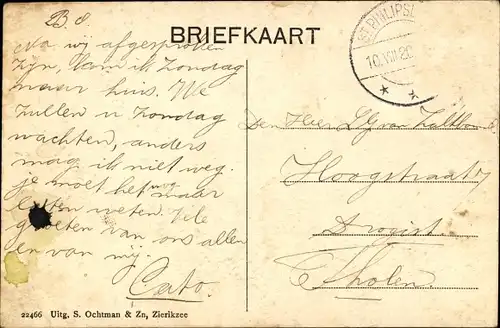 B. S.
Na wij afgesproken
zijn, kan ik Zondag
naar huis. We
zullen u Zondag
wachten, anders
mag ik niet weg.
je moet het nog maar
laten weten. Vele
groeten van ons allen
en van mij.
Cato.
22466 Uitg. S. Ochtman & Zn, Zierikzee
BRIEFKAART
ST. PHILIPSL
10.VIII.20
Den Heer
Hoogstraat
Drogist
Tholen.